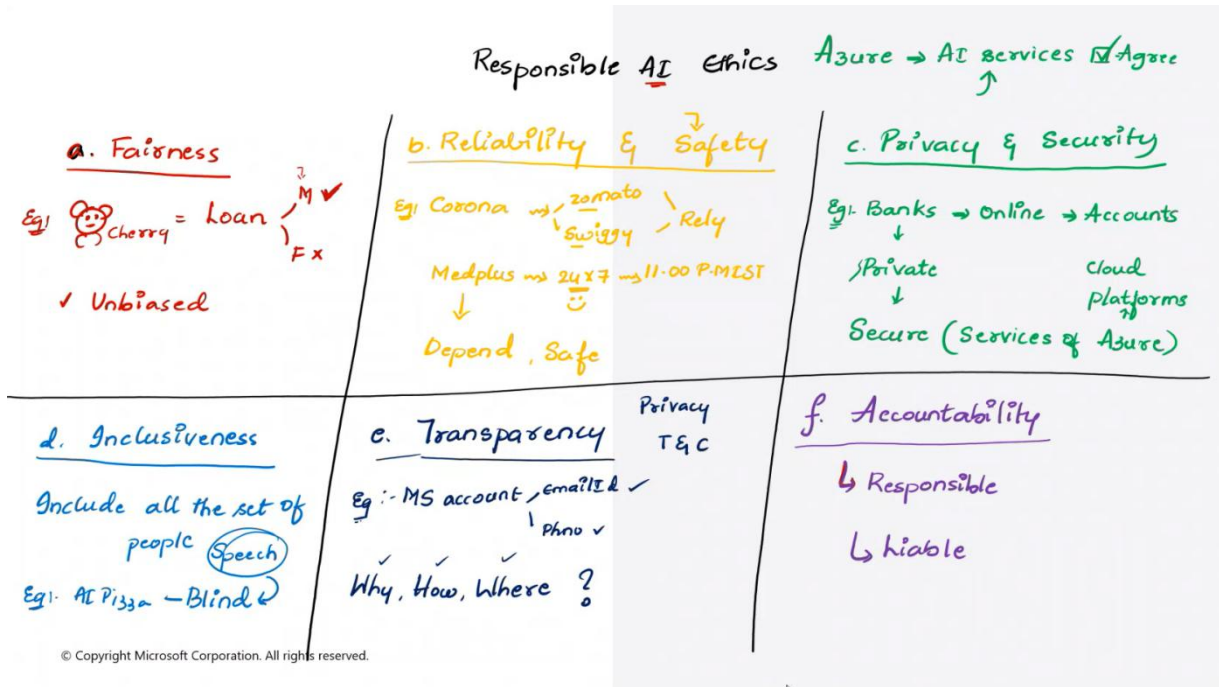 Responsible AI Ethics
Azure → AI services ☑ Agree
a. Fairness
Eg! Cherry = Loan
M ✓
F ×
✓ Unbiased
b. Reliability & Safety
Eg! Corona → zomato
Swiggy
Rely
Medplus → 24x7 → 11.00 P.M IST
Depend, Safe
c. Privacy & Security
Eg!. Banks → Online → Accounts
Private
cloud
platforms
Secure (Services of Azure)
d. Inclusiveness
Include all the set of
people Speech
Eg!. AI Pizza - Blind
e. Transparency
Privacy
T & C
Eg :- MS account
EmailId ✓
Phno ✓
Why, How, Where ?
f. Accountability
↳ Responsible
↳ Liable
© Copyright Microsoft Corporation. All rights reserved.